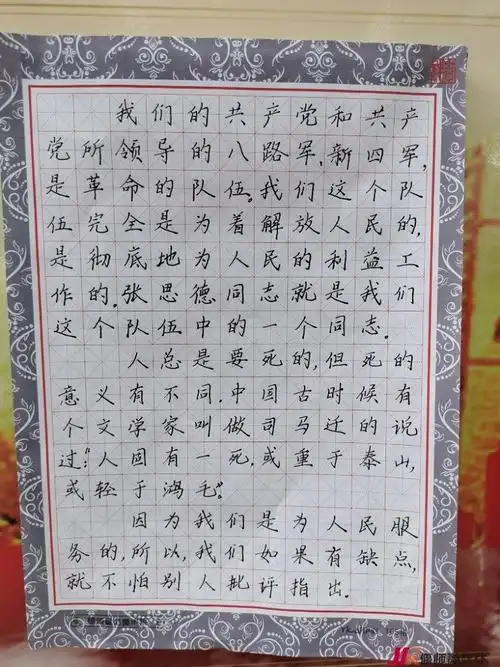 我们的共产党和共产
党所领导的八路军,新四军,
是革命的队伍。我们这个队
伍完全是为着解放人民的,
是彻底地为人民的利益工
作的.张思德同志就是我们
这个队伍中的一个同志.
人总是要死的,但死的
意义有不同.中国古时候的有
个文学家叫做司马迁的说
过:"人固有一死.或重于泰山,
或轻于鸿毛"。
因为我们是为人民服
务的,所以,我们如果有缺点,
就不怕别人批评指出.